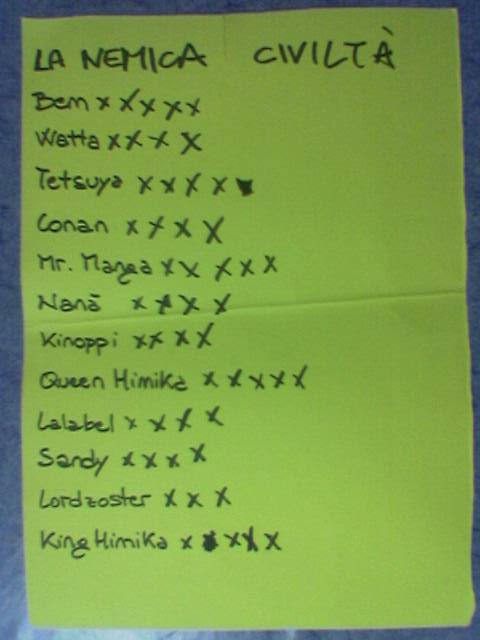 LA NEMICA CIVILTÀ
Bem x x x x x
Watta x x x x
Tetsuya x x x x
Conan x x x x
Mr. Manga x x x x x
Nanà x x x x
Kinoppi x x x x
Queen Himika x x x x x
Lalabel x x x x
Sandy x x x x
Lordzoster x x x
King Himika x x x x